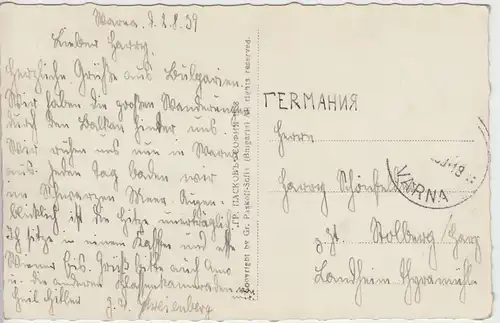 Warna, d. 2.8.39
Lieber Harry.
Herzliche Grüße aus Bulgarien.
Wir haben die großen Wanderungen
durch den Balkan hinter uns.
Wir ruhen uns nun in Warna
aus. Jeden Tag baden wir
im Schwarzen Meer. Augen-
blicklich ist die Hitze unerträglich
Ich sitze in einem Kaffee und esse
Wiener Eis. Grüß bitte auch
u. die anderen Klassenkameraden
Heil Hitler
ГР. ПАСКОВЪ-СОФИЯ-1938
Copyright by Gr. Paskoff-Sofia (Bulgarie) All rights reserved.
ГЕРМАНИЯ
Herrn
Harry
VARNA
z. Zt. Stolberg/Harz
Landheim